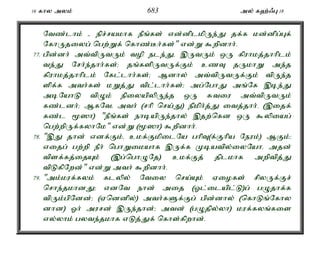 16 கால அலம் 683 அல் கஹ்ஃபு 18
வேண்டாம் , நிச்சயமாக நீங்கள் என்னிடமிருந்து தக்க மன்னிப்புக்
கோருதலைப் பெற்றுக் கொண்டீர்கள்" என்று கூறினார்.
77. பின்னர் அவ்விருவரும் வழி நடந்து, இருவரும் ஒரு கிராமத்தாரிடம்
வந்து சேர்ந்தார்கள்; தங்களிருவருக்கும் உணவு தருமாறு அந்த
கிராமத்தாரிடம் கேட்டார்கள்; ஆனால் அவ்விருவருக்கும் விருந்த
ளிக்க அவர்கள் மறுத்து விட்டார்கள்; அப்போது அங்கே இடிந்து
அடியோடு விழும் நிலையிலிருந்த ஒரு சுவரை அவ்விருவரும்
கண்டனர்; ஆகவே அவர் (சரி செய்து) நிமிர்த்து வைத்தார். (இதைக்
கண்ட மூஸா) "நீங்கள் நாடியிருந்தால் இதற்கென ஒரு கூலியைப்
பெற்றிருக்கலாமே" என்று (மூஸா) கூறினார்.
78. "இது தான் எனக்கும், உமக்குமிடையே பரிவு(க்குரிய நேரம்) ஆகும்;
எதைப் பற்றி நீர் பொறுமையாக இருக்க முடியவில்லையோ, அதன்
விளக்கத்தையும் (இப்பொழுதே) உமக்குத் திடமாக அறிவித்து
விடுகிறேன்" என்று அவர் கூறினார்.
79. "அம்மரக்கலம் கடலில் வேலை செய்யும் ஏழைகள் சிலருக்குச்
சொந்தமானது; எனவே நான் அதை (ஓட்டையிட்டு)ப் பழுதாக்க
விரும்பினேன்; (ஏனெனில்) அவர்களுக்குப் பின்னால் (கொடுங்கோல
னான) ஓர் அரசன் இருந்தான்; அவன் (பழுதில்லா) மரக்கலங்களை
எல்லாம் பலவந்தமாக எடுத்துக் கொள்கிறான்.